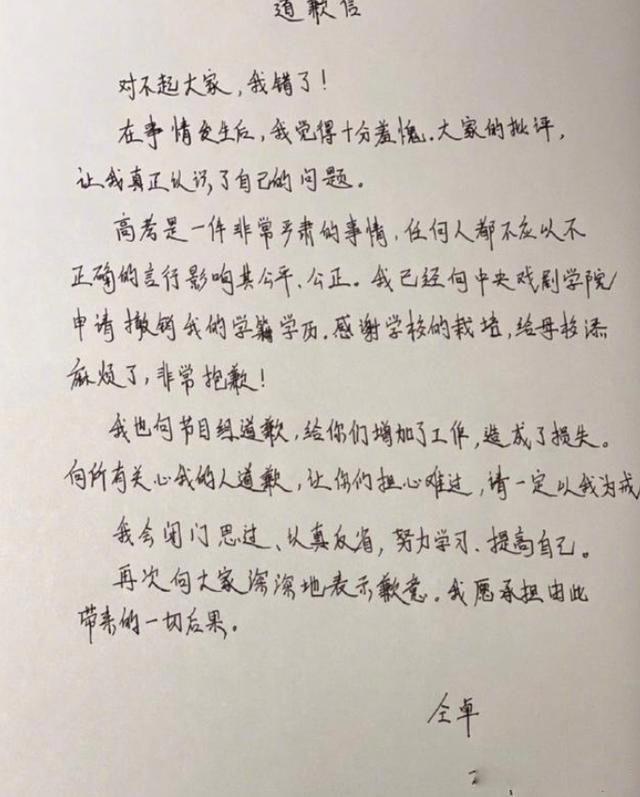 道歉信
对不起大家，我错了！
在事情发生后，我觉得十分羞愧。大家的批评，
让我真正认识了自己的问题。
高考是一件非常严肃的事情，任何人都不应以不
正确的言行影响其公平、公正。我已经向中央戏剧学院
申请撤销我的学籍学历。感谢学校的栽培，给母校添
麻烦了，非常抱歉！
我也向节目组道歉，给你们增加了工作，造成了损失。
向所有关心我的人道歉，让你们担心难过，请一定以我为戒
我会闭门思过、认真反省，努力学习、提高自己。
再次向大家深深地表示歉意。我愿承担由此
带来的一切后果。
仝卓